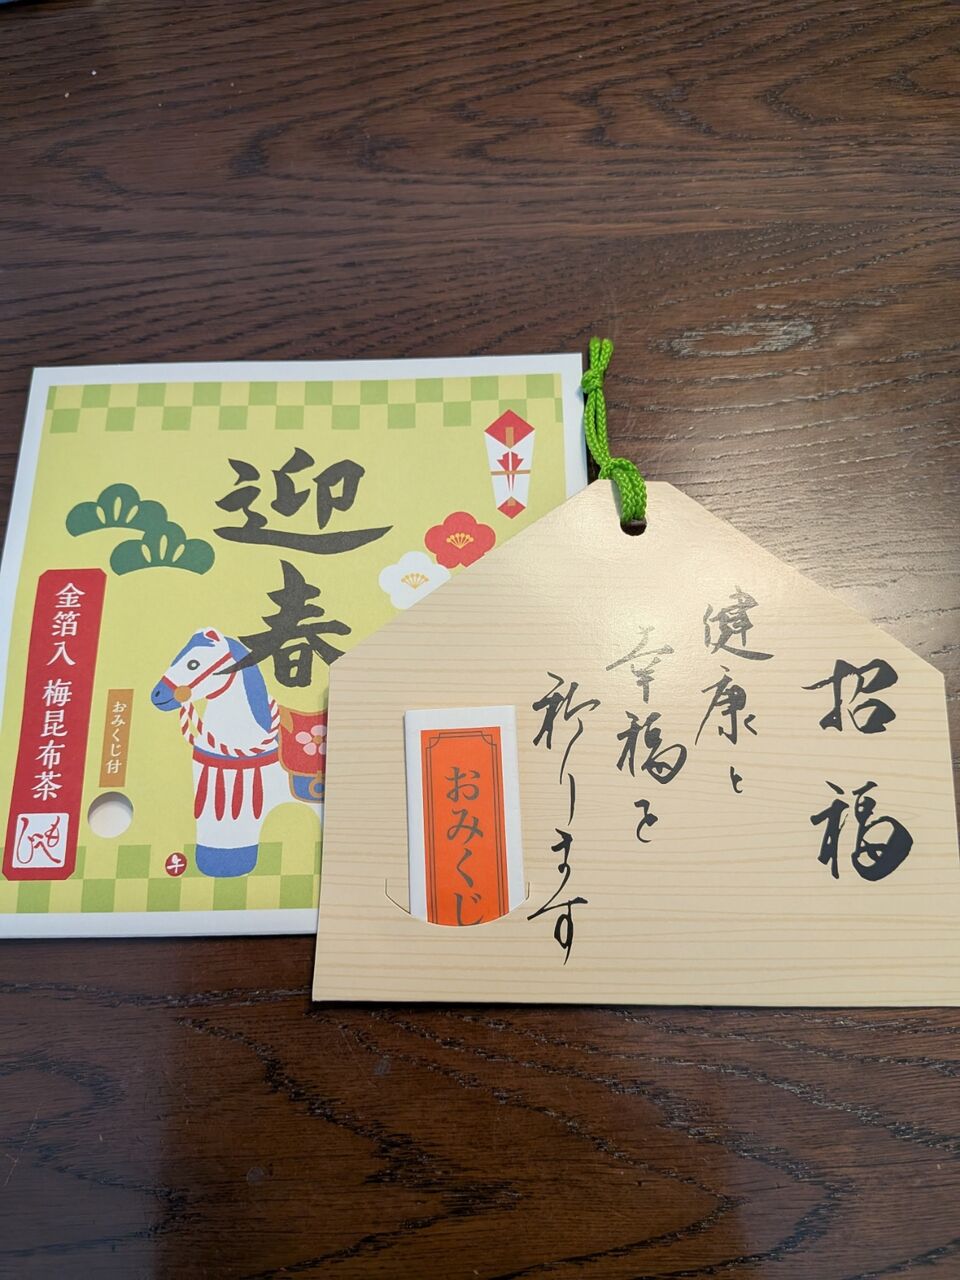 迎春
金箔入 梅昆布茶
おみくじ付
午
招福
健康と
幸福を
祈ります
おみくじ